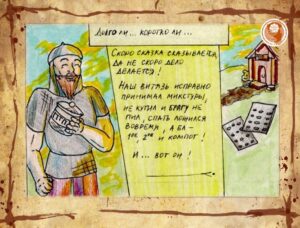 Долго ли... коротко ли...
Скоро сказка сказывается,
да не скоро дело
делается!
Наш витязь исправно
принимал микстуры,
не кутил и брагу не
пил, спать ложился
вовремя, а ба-
и компот!
И... вот он!